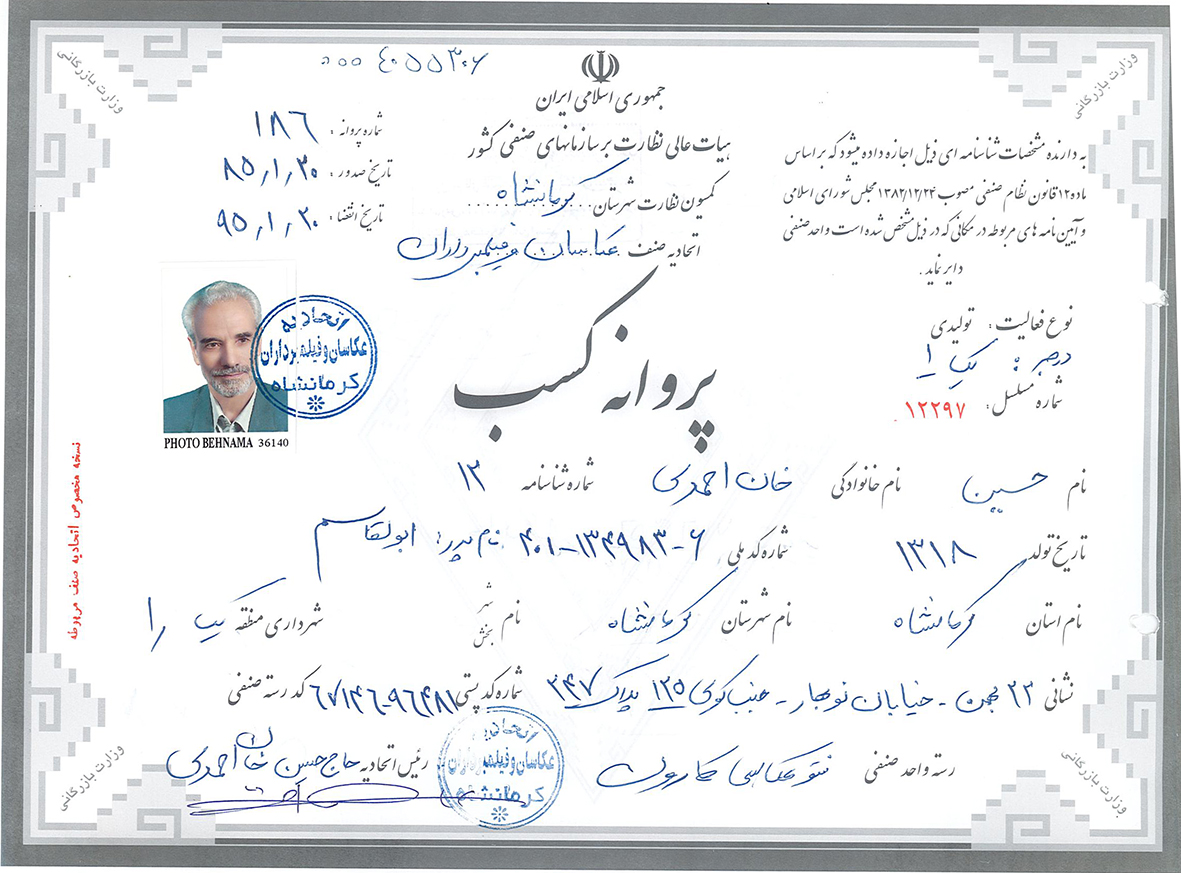 وزارت بازرگانی
وزارت بازرگانی
۴۰۵۵۳۰۶۰۰۰
جمهوری اسلامی ایران
هیات عالی نظارت بر سازمانهای صنفی کشور
کمیون نظارت شهرستان کرمانشاه
اتحادیه صنف عکاسان و فیلمبرداران
شماره پروانه : ۱۸۶
تاریخ صدور : ۸۵/۱/۳۰
تاریخ انقضاء : ۹۵/۱/۳۰
به دارنده مشخصات شناسنامه ای ذیل اجازه داده میشود که بر اساس
ماده ۱۲ قانون نظام صنفی مصوب ۱۳۸۲/۱۲/۲۴ مجلس شورای اسلامی
و آیین نامه های مربوطه در مکانی که در ذیل مشخص شده است واحد صنفی
دایر نماید .
نوع فعالیت : تولیدی
درجه : یک ۱
شماره مسلسل : ۱۲۲۹۷
پروانه کسب
اتحادیه
عکاسان و فیلمبرداران
کرمانشاه
PHOTO BEHNAMA 36140
نام حسین نام خانوادگی خان احمدی شماره شناسنامه ۱۲
تاریخ تولد ۱۳۱۸ شماره کد ملی ۴۰۱-۱۳۴۹۸۳-۶ نام پدر: ابولقاسم
نام استان کرمانشاه نام شهرستان کرمانشاه نام شهر بخش شهرداری منطقه یک را
نشانی ۲۲ بهمن - خیابان نوبهار - جنب کوی ۱۲۵ پلاک ۳۴۷ شماره کد پستی ۶۷۱۴۶-۹۶۴۸۱ کد رسته صنفی
رسته واحد صنفی فتو عکاسی کارون رئیس اتحادیه حاج حسین خان احمدی
اتحادیه
عکاسان و فیلمبرداران
کرمانشاه
نسخه مخصوص اتحادیه صنف مربوطه
وزارت بازرگانی
وزارت بازرگانی